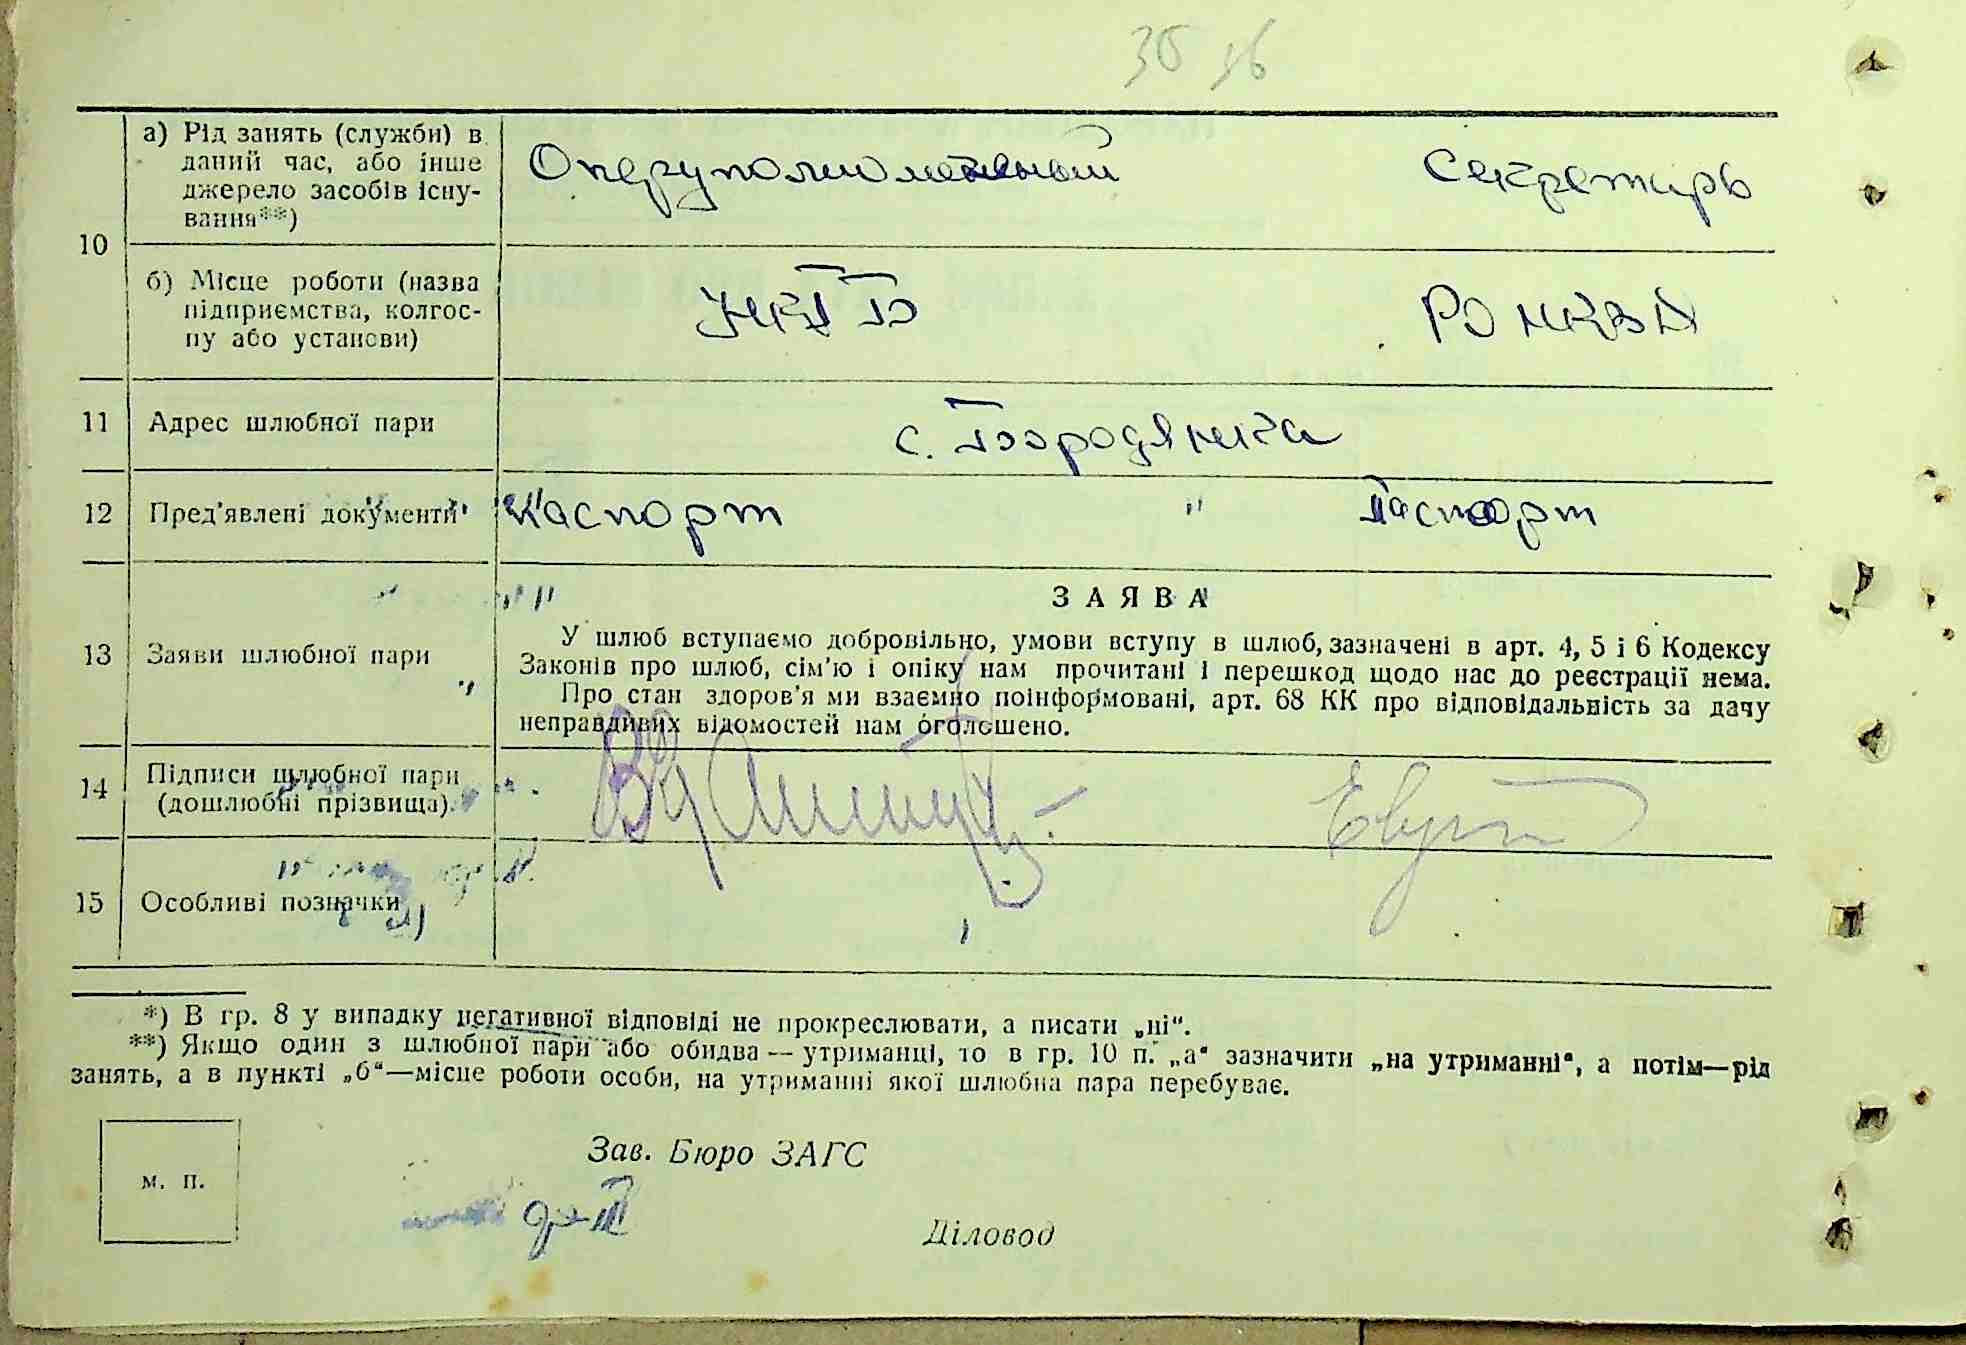 36
10
а) Рід занять (служби) в
даний час, або інше
джерело засобів існу-
вання**)
Оперуполномоченный
Секретарь
б) Місце роботи (назва
підприємства, колгос-
пу або установи)
НКГБ
РО НКВД
11 Адрес шлюбної пари
с. Бородянка
12 Пред'явлені документи
Паспорт " Паспорт
13 Заяви шлюбної пари
ЗАЯВА
У шлюб вступаємо добровільно, умови вступу в шлюб, зазначені в арт. 4, 5 і 6 Кодексу
Законів про шлюб, сім'ю і опіку нам прочитані і перешкод щодо нас до реєстрації нема.
Про стан здоров'я ми взаємно поінформовані, арт. 68 КК про відповідальність за дачу
неправдивих відомостей нам оголошено.
14 Підписи шлюбної пари
(дошлюбні прізвища).
15 Особливі позначки
*) В гр. 8 у випадку негативної відповіді не прокреслювати, а писати „ні“.
**) Якщо один з шлюбної пари або обидва — утриманці, то в гр. 10 п. „а“ зазначити „на утриманні“, а потім—рід
занять, а в пункті „б“—місце роботи особи, на утриманні якої шлюбна пара перебуває.
м. п.
Зав. Бюро ЗАГС
Діловод